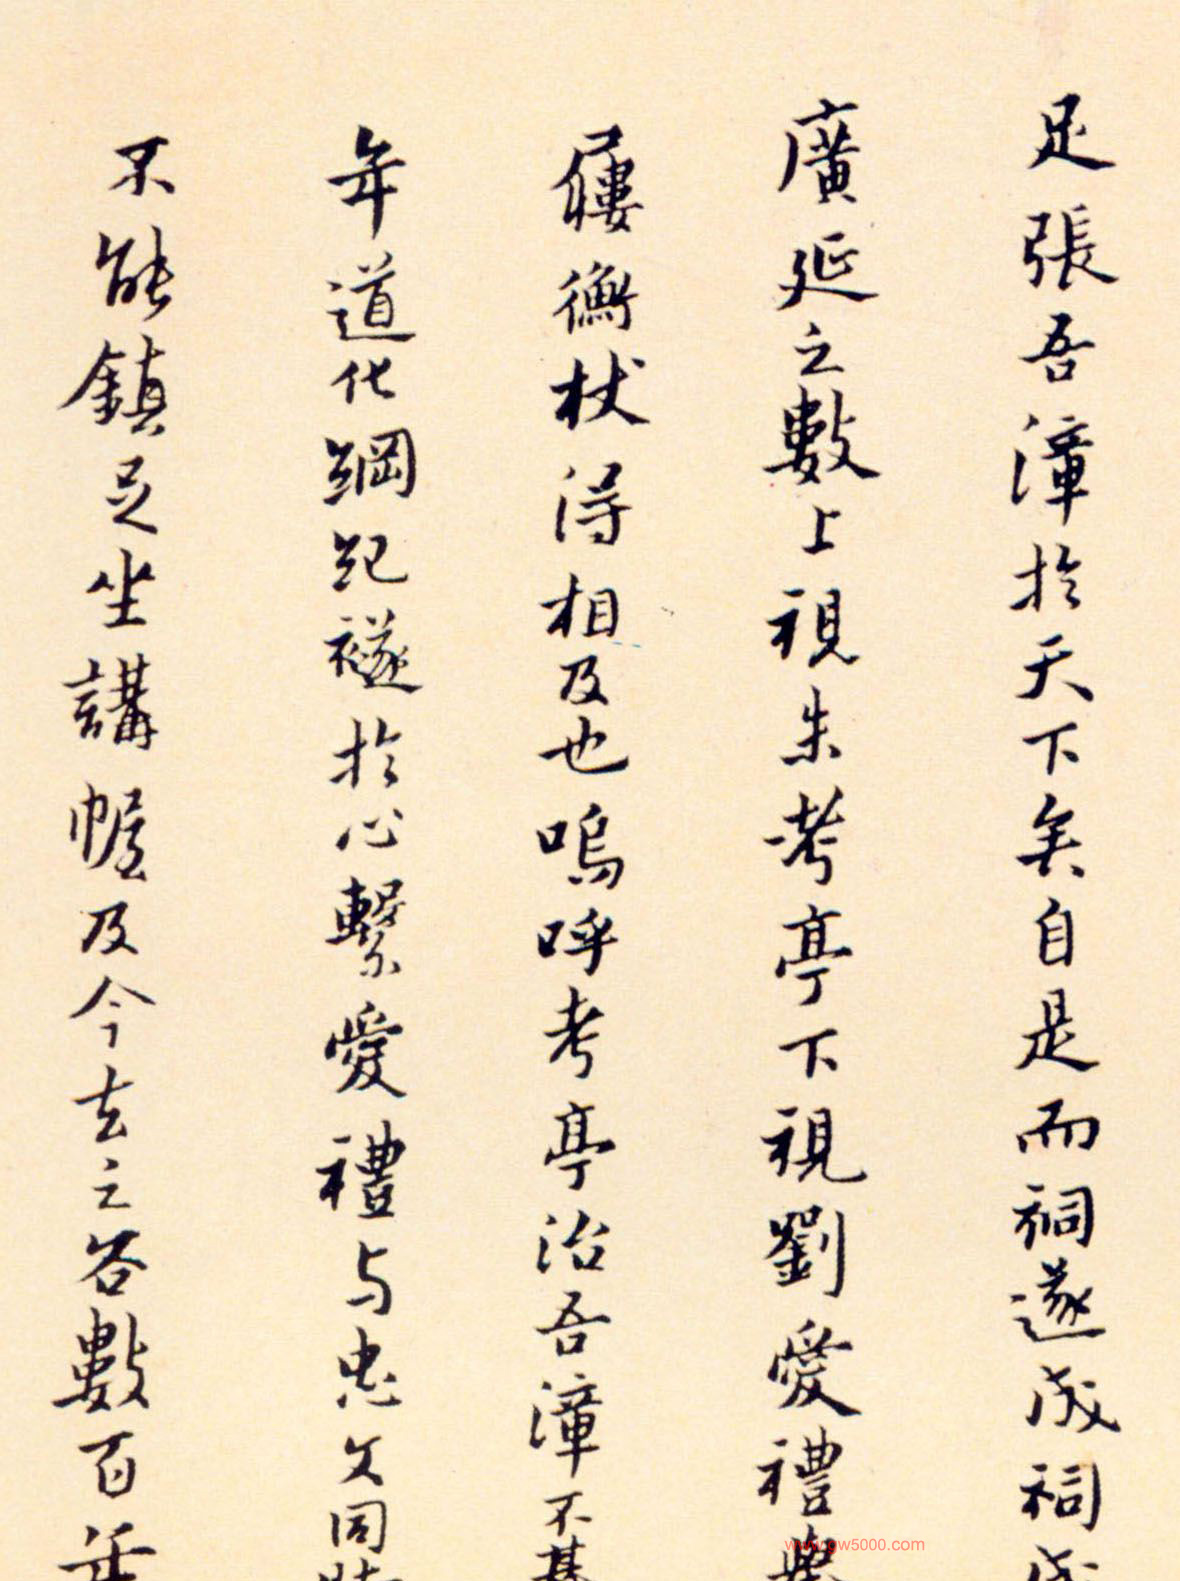 足張吾漳於天下矣自是而祠遂成祠成
廣延之數上視朱考亭下視劉愛禮與
屨衡杖得相及也嗚呼考亭治吾漳不朞
年道化綱紀襚於心繫愛禮与忠文同時
不能鎮足坐講幄及今去之各數百年
www.gw5000.com